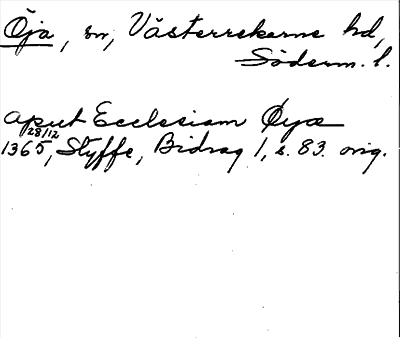 Öja, sn, Västerrekarne hd,
Söderm. l.
aput Ecclesiam Øyæ
28/12
1365, Styffe, Bidrag 1, s. 83. orig.